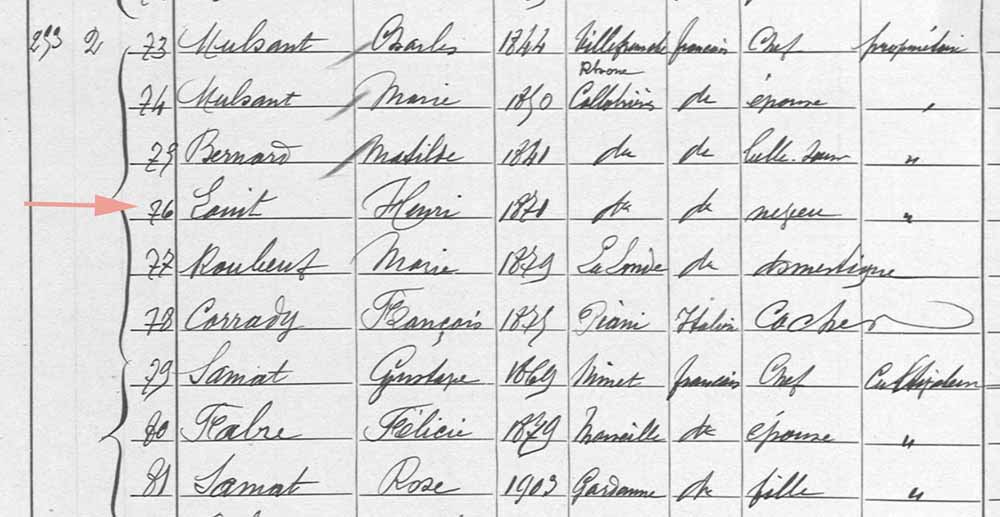 293 2 73 Mulsant Charles 1844 Villefranche français Chef propriétaire
Rhone
74 Mulsant Marie 1850 Collobrières do épouse "
75 Bernard Matilde 1841 do do belle-soeur "
76 Henri 1871 do do neveu "
77 Marie 1879 La Londe do domestique
78 Corrady François 1875 Italien Cocher
79 Samat Gustave 1869 Mimet français Chef Cultivateur
80 Fabre Félicie 1879 Marseille do épouse "
81 Samat Rose 1903 Gardanne do fille "